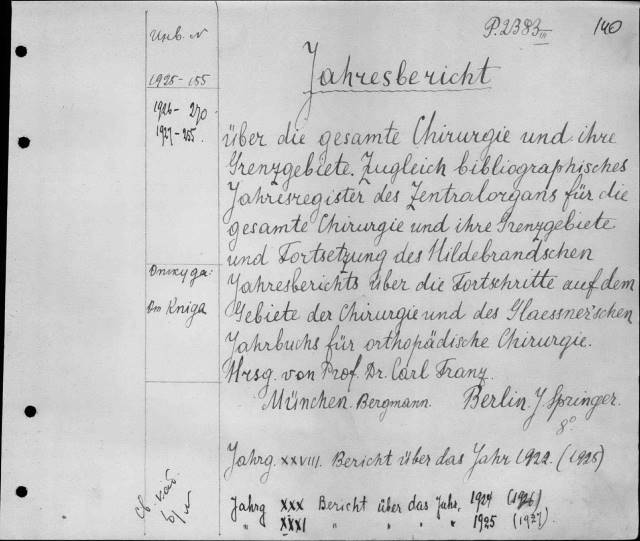 P.2383 III 140
Инв. №
1925-155
1926-270
1927-255.
Откуда:
От Kniga
Jahresbericht
über die gesamte Chirurgie und ihre
Grenzgebiete. Zugleich bibliographisches
Jahresregister des Zentralorgans für die
gesamte Chirurgie und ihre Grenzgebiete
und Fortsetzung des Hildebrandschen
Jahresberichts über die Fortschritte auf dem
Gebiete der Chirurgie und des Glaessner'schen
Jahrbuchs für orthopädische Chirurgie.
Hrsg. von Prof. Dr. Carl Franz.
München. Bergmann. Berlin. J. Springer.
8°
Jahrg. XXVIII. Bericht über das Jahr 1922. (1925)
Jahrg XXX Bericht über das Jahr. 1924 (1926)
" XXXI " " " " 1925 (1927)